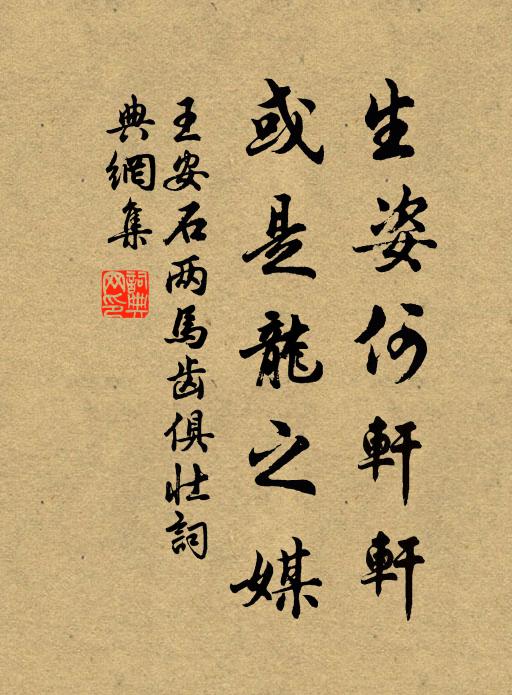 生姿何軒軒
或是龍之媒
王安石两馬齿俱壮詞
典網集
詞典網印